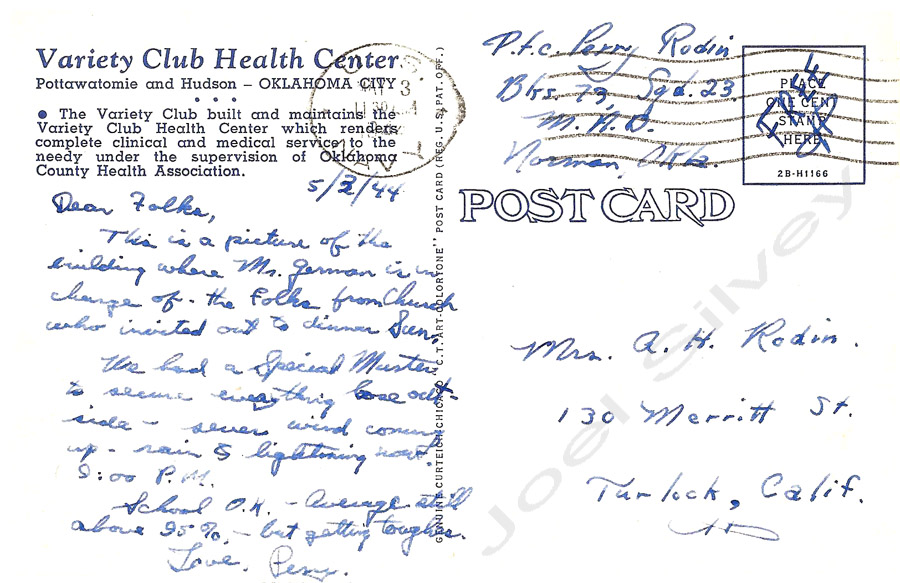 Variety Club Health Center
Pottawatomie and Hudson – OKLAHOMA CITY
• • •
● The Variety Club built and maintains the
Variety Club Health Center which renders
complete clinical and medical service to the
needy under the supervision of Oklahoma
County Health Association.
5/2/44
Dear Folks,
This is a picture of the
building where Mr. German is in
charge of - the Folks from Church
who invited out to dinner Sun.
We had a Special Muster
to secure everything loose out-
side - sever wind coming
up - rain & lightning now.
9:00 P.M.
School O.K. - Average still
above 95%, - but getting tougher.
Love, Perry.
GENUINE CURTEICH-CHICAGO "C.T. ART-COLORTONE" POST CARD (REG. U.S. PAT. OFF.)
P.f.c. Perry Rodin
Bks. 79, Sqd. 23
Norman, Okla.
PLACE
ONE CENT
STAMP
HERE
2B-H1166
FREE
POST CARD
Mrs. A. H. Rodin.
130 Merritt St.
Turlock, Calif.
Joel Silvey